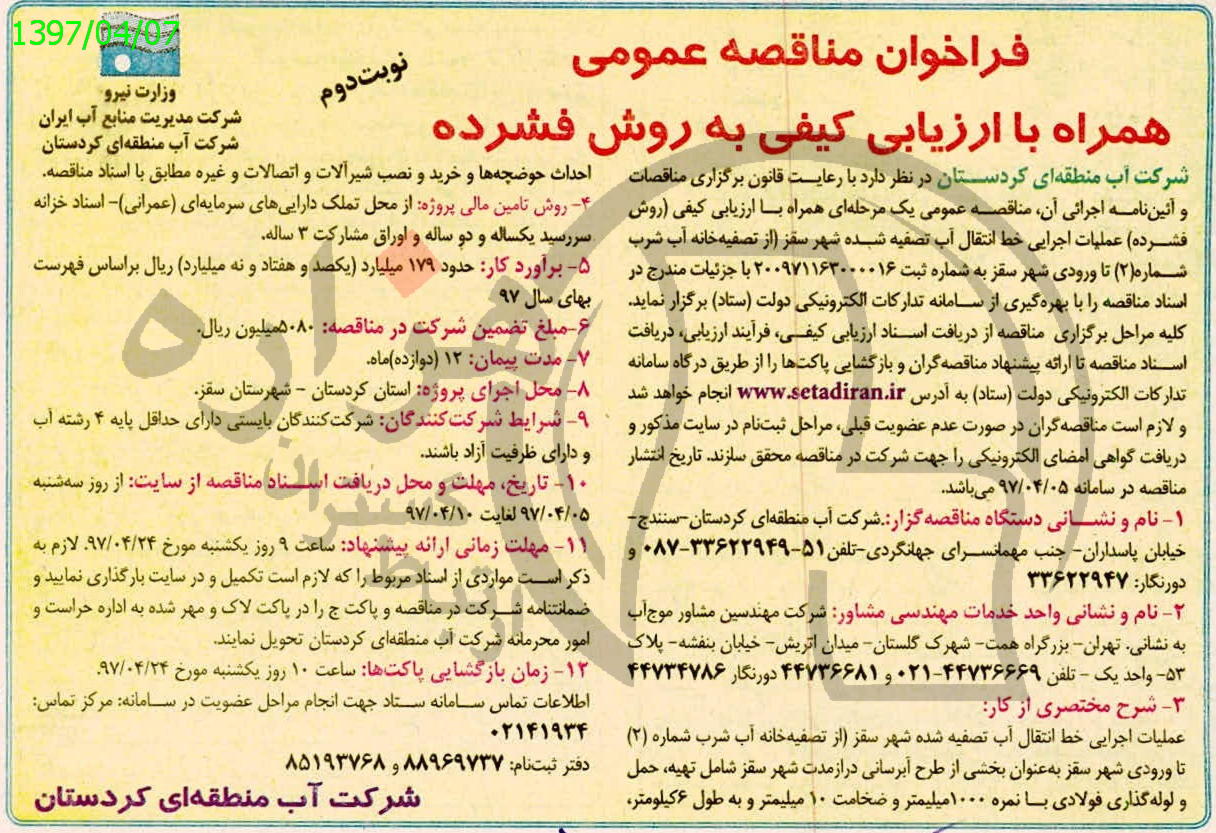 1397/04/07
وزارت نیرو
شرکت مدیریت منابع آب ایران
شرکت آب منطقه‌ای کردستان
نوبت دوم
فراخوان مناقصه عمومی
همراه با ارزیابی کیفی به روش فشرده
شرکت آب منطقه‌ای کردستان در نظر دارد با رعایت قانون برگزاری مناقصات
و آئین‌نامه اجرائی آن، مناقصه عمومی یک مرحله‌ای همراه با ارزیابی کیفی (روش
فشرده) عملیات اجرایی خط انتقال آب تصفیه شده شهر سقز (از تصفیه‌خانه آب شرب
شماره(۲) تا ورودی شهر سقز به شماره ثبت ۲۰۰۹۷۱۱۶۳۰۰۰۰۱۶ با جزئیات مندرج در
اسناد مناقصه را با بهره‌گیری از سامانه تدارکات الکترونیکی دولت (ستاد) برگزار نماید.
کلیه مراحل برگزاری مناقصه از دریافت اسناد ارزیابی کیفی، فرآیند ارزیابی، دریافت
اسناد مناقصه تا ارائه پیشنهاد مناقصه‌گران و بازگشایی پاکت‌ها را از طریق درگاه سامانه
تدارکات الکترونیکی دولت (ستاد) به آدرس www.setadiran.ir انجام خواهد شد
و لازم است مناقصه‌گران در صورت عدم عضویت قبلی، مراحل ثبت‌نام در سایت مذکور و
دریافت گواهی امضای الکترونیکی را جهت شرکت در مناقصه محقق سازند. تاریخ انتشار
مناقصه در سامانه ۹۷/۰۴/۰۵ می‌باشد.
۱- نام و نشانی دستگاه مناقصه‌گزار:.شرکت آب منطقه‌ای کردستان-سنندج-
خیابان پاسداران- جنب مهمانسرای جهانگردی-تلفن۵۱-۳۳۶۲۲۹۴۹-۰۸۷ و
دورنگار: ۳۳۶۲۲۹۴۷
۲- نام و نشانی واحد خدمات مهندسی مشاور: شرکت مهندسین مشاور موج‌آب
به نشانی. تهران- بزرگراه همت- شهرک گلستان- میدان اتریش- خیابان بنفشه- پلاک
۵۳- واحد یک - تلفن ۴۴۷۳۶۶۶۹-۰۲۱ و ۴۴۷۳۶۶۸۱ دورنگار ۴۴۷۳۴۷۸۶
۳- شرح مختصری از کار:
عملیات اجرایی خط انتقال آب تصفیه شده شهر سقز (از تصفیه‌خانه آب شرب شماره (۲)
تا ورودی شهر سقز به‌عنوان بخشی از طرح آبرسانی درازمدت شهر سقز شامل تهیه، حمل
و لوله‌گذاری فولادی با نمره ۱۰۰۰میلیمتر و ضخامت ۱۰ میلیمتر و به طول ۶کیلومتر،
احداث حوضچه‌ها و خرید و نصب شیرآلات و اتصالات و غیره مطابق با اسناد مناقصه.
۴- روش تامین مالی پروژه: از محل تملک دارایی‌های سرمایه‌ای (عمرانی)- اسناد خزانه
سررسید یکساله و دو ساله و اوراق مشارکت ۳ ساله.
۵- برآورد کار: حدود ۱۷۹ میلیارد (یکصد و هفتاد و نه میلیارد) ریال براساس فهرست
بهای سال ۹۷
۶-مبلغ تضمین شرکت در مناقصه: ۵۰۸۰میلیون ریال.
۷- مدت پیمان: ۱۲ (دوازده)ماه.
۸- محل اجرای پروژه: استان کردستان - شهرستان سقز.
۹- شرایط شرکت‌کنندگان: شرکت‌کنندگان بایستی دارای حداقل پایه ۴ رشته آب
و دارای ظرفیت آزاد باشند.
۱۰- تاریخ، مهلت و محل دریافت اسناد مناقصه از سایت: از روز سه‌شنبه
۹۷/۰۴/۰۵ لغایت ۹۷/۰۴/۱۰
۱۱- مهلت زمانی ارائه پیشنهاد: ساعت ۹ روز یکشنبه مورخ ۹۷/۰۴/۲۴. لازم به
ذکر است مواردی از اسناد مربوط را که لازم است تکمیل و در سایت بارگذاری نمایید و
ضمانتنامه شرکت در مناقصه و پاکت ج را در پاکت لاک و مهر شده به اداره حراست و
امور محرمانه شرکت آب منطقه‌ای کردستان تحویل نمایند.
۱۲- زمان بازگشایی پاکت‌ها: ساعت ۱۰ روز یکشنبه مورخ ۹۷/۰۴/۲۴.
اطلاعات تماس سامانه ستاد جهت انجام مراحل عضویت در سامانه: مرکز تماس:
۰۲۱۴۱۹۳۴
دفتر ثبت‌نام: ۸۸۹۶۹۷۳۷ و ۸۵۱۹۳۷۶۸
شرکت آب منطقه‌ای کردستان